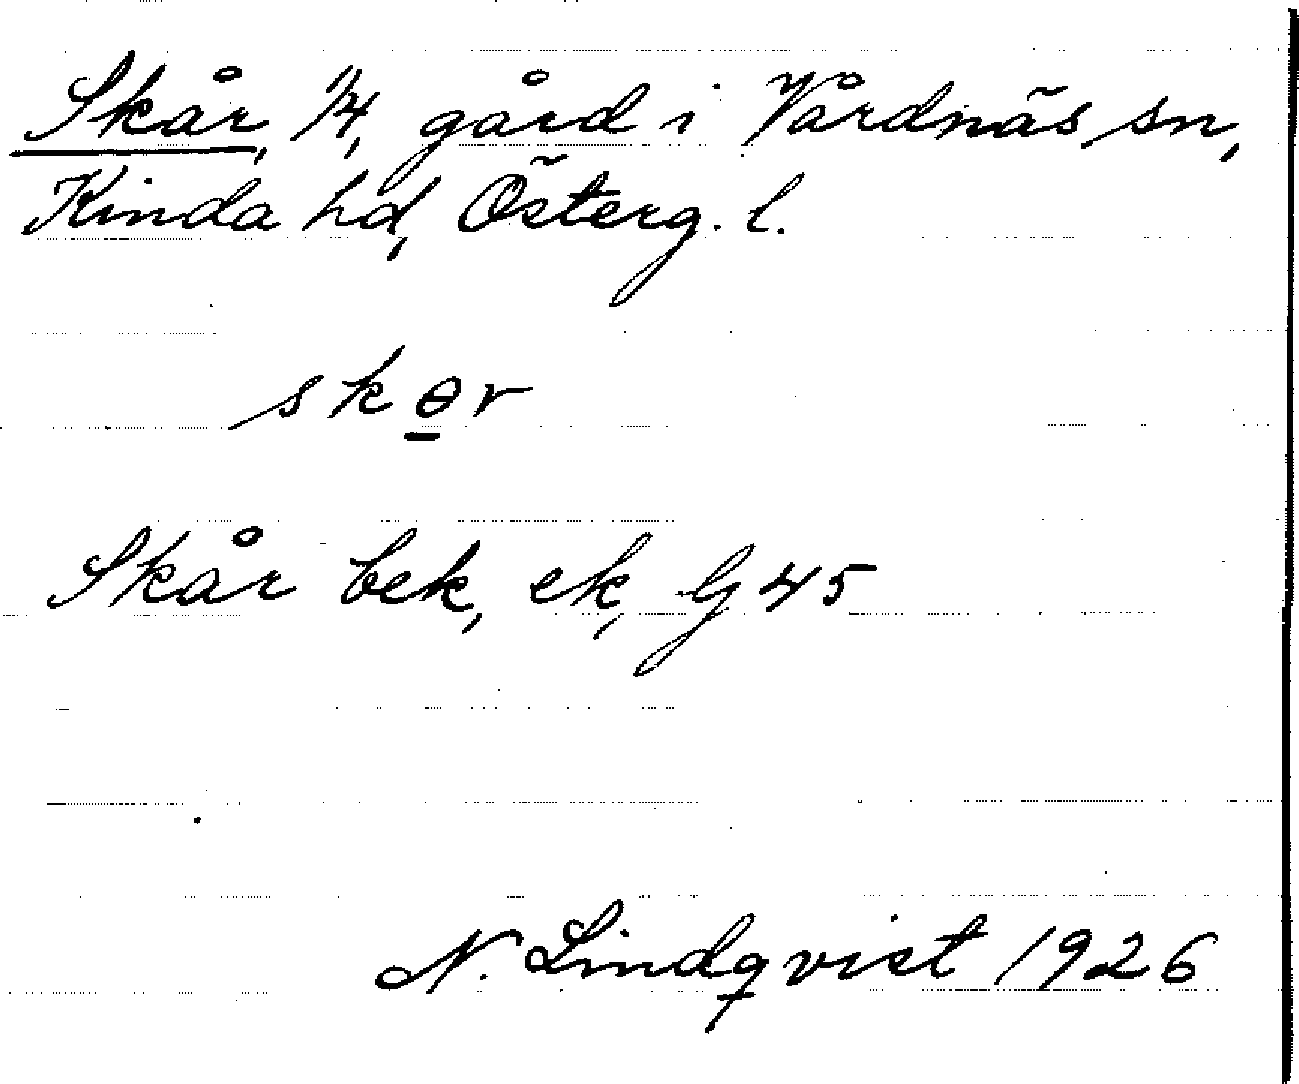 Skår, 1/4, gård i Vårdnäs sn,
Kinda hd, Österg. l.
skɵr
Skår bek, ek, G 45
N. Lindqvist 1926